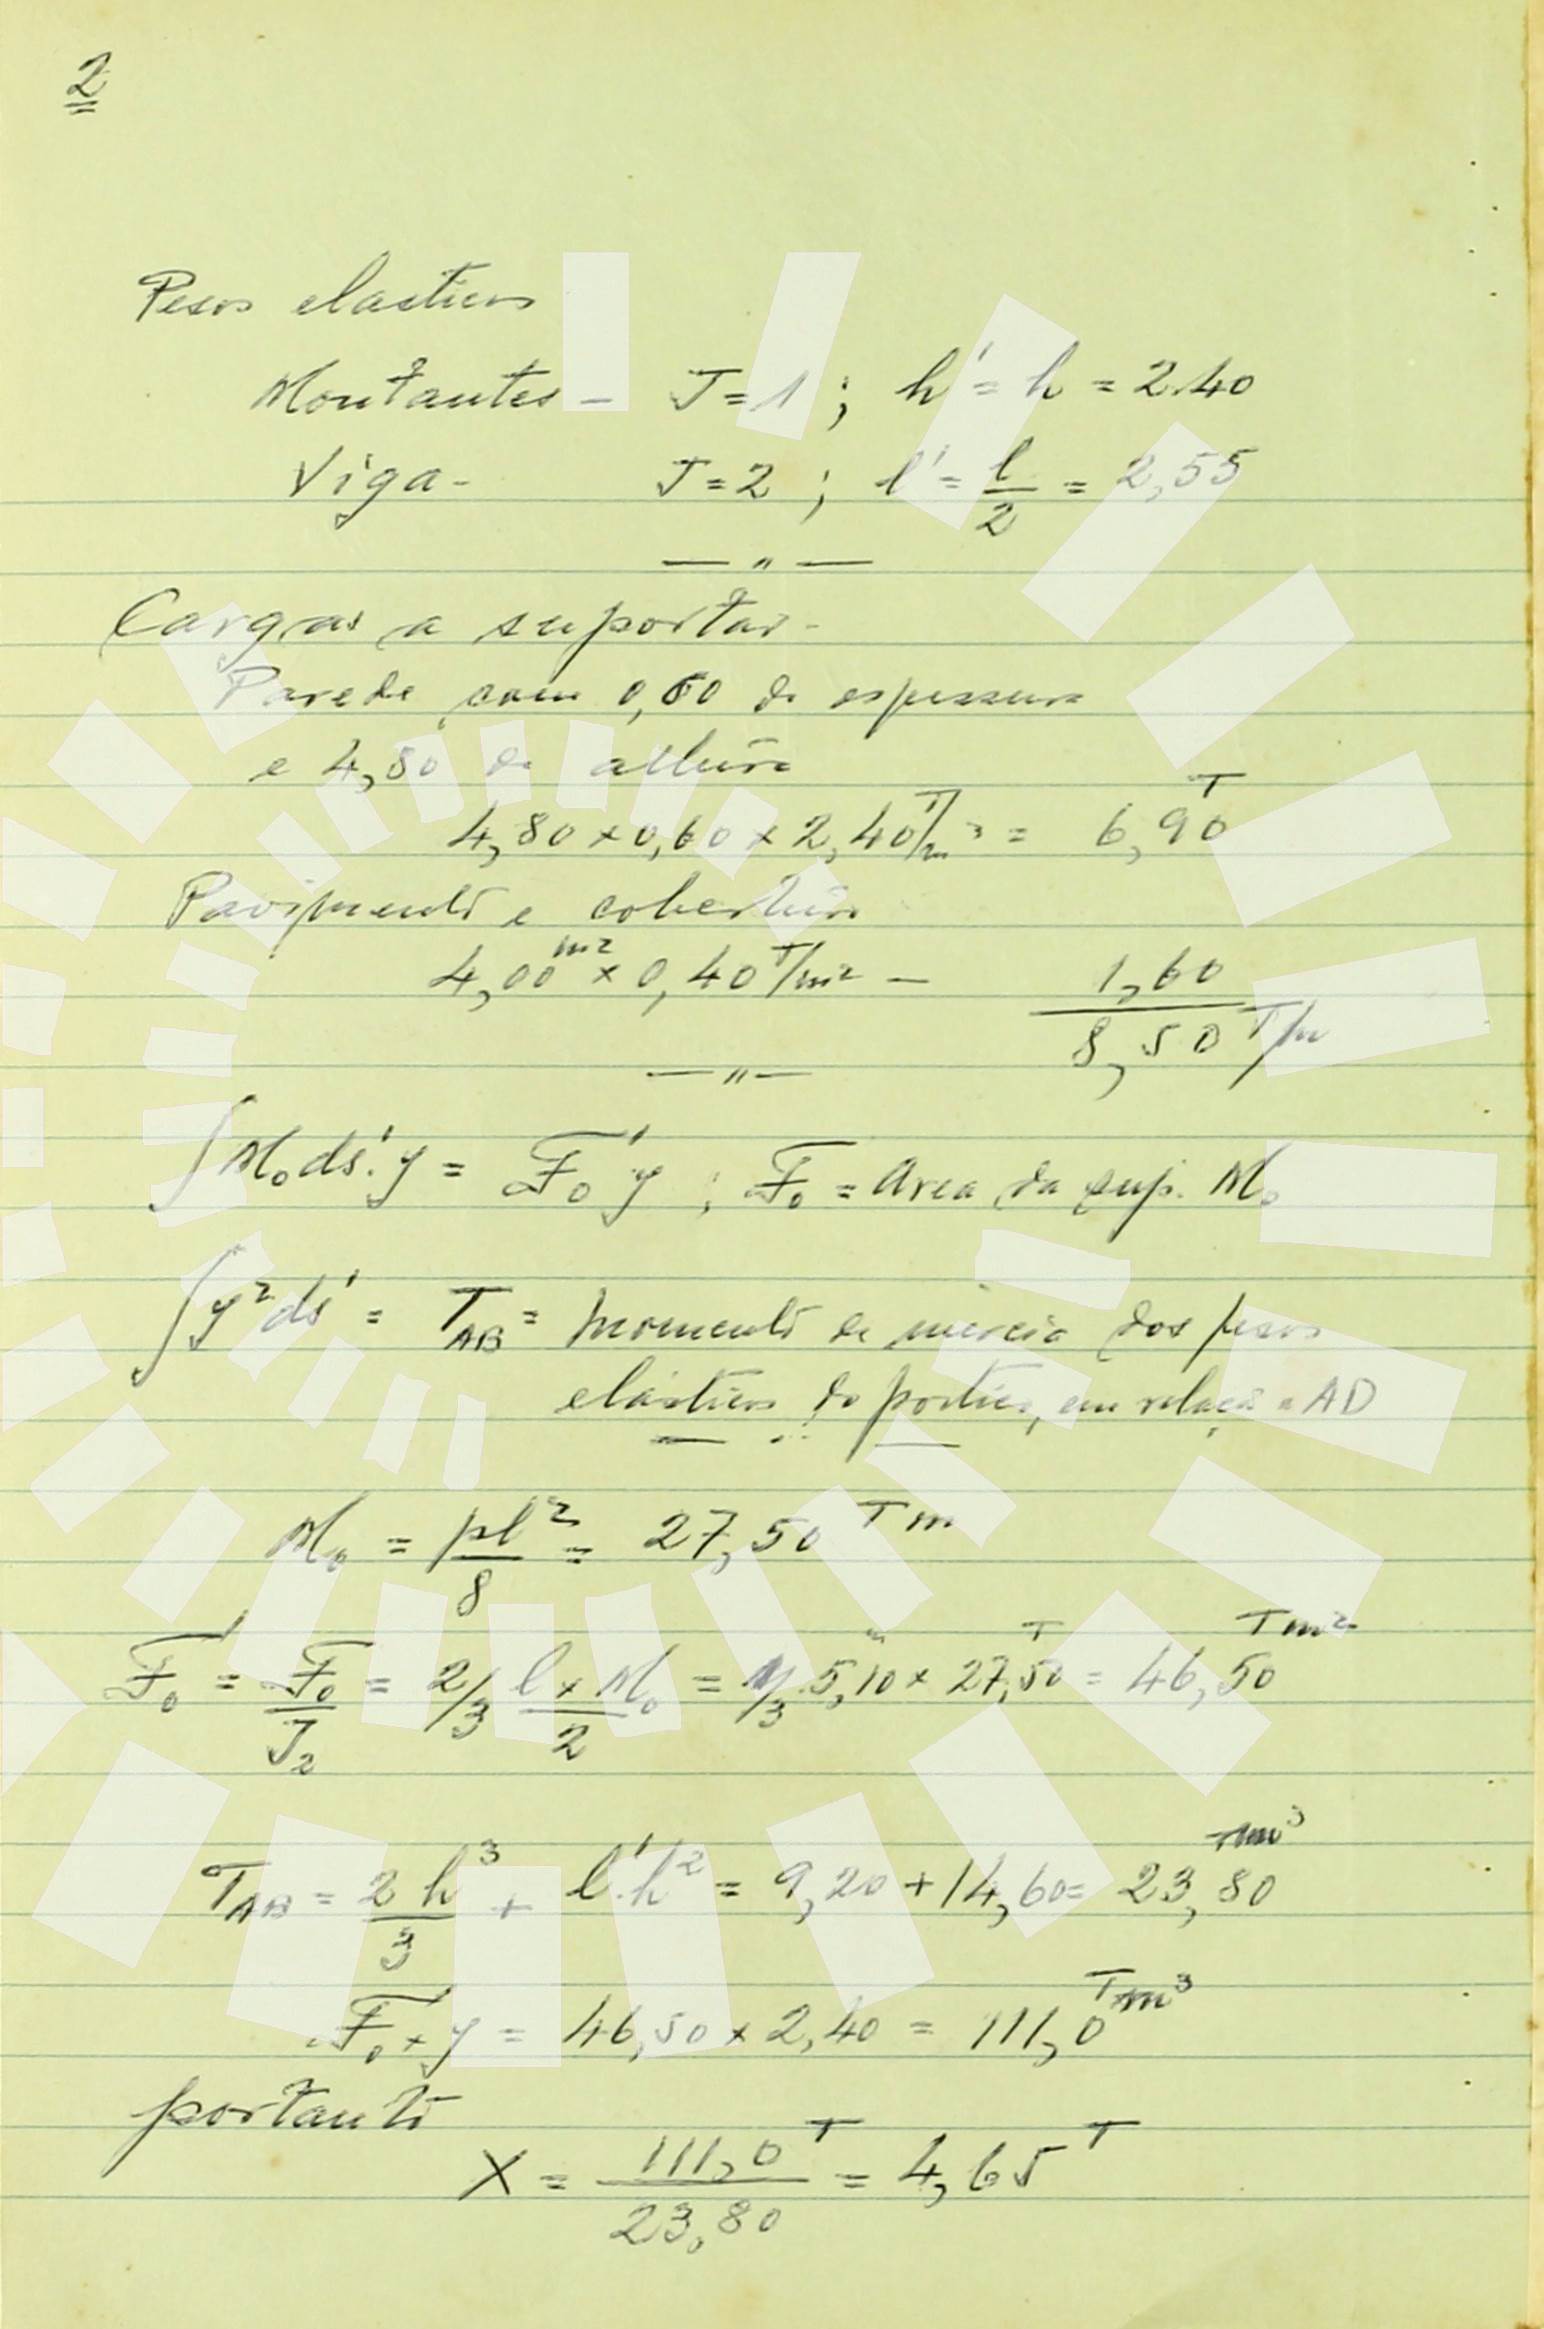 2
Pesos elasticos
Montantes - J=1 ; h' = h = 2.40
Viga - J=2 ; l' = l/2 = 2,55
— " —
Cargas a suportar -
Parede com 0,60 de espessura
e 4,80 de altura
4,80 × 0,60 × 2,40 T/m³ = 6,90 T
Pavimento e cobertura
4,00 m² × 0,40 T/m² — 1,60
8,50 T/m
— " —
∫ M₀ ds'. y = F₀' y ; F₀ = Area da sup. M₀
∫ y² ds' = T_AB = momento de inercia dos pesos
elásticos do portico, em relação a AD
M₀ = pl²/8 = 27,50 Tm
F₀' = F₀/J₂ = 2/3 l × M₀/2 = 1/3 5,10 m × 27,50 T = 46,50 Tm²
T_AB = 2h³/3 + l'.h² = 9,20 + 14,60 = 23,80 m³
F₀' × y = 46,50 × 2,40 = 111,0 Tm³
portanto
X = 111,0 T/23,80 = 4,65 T